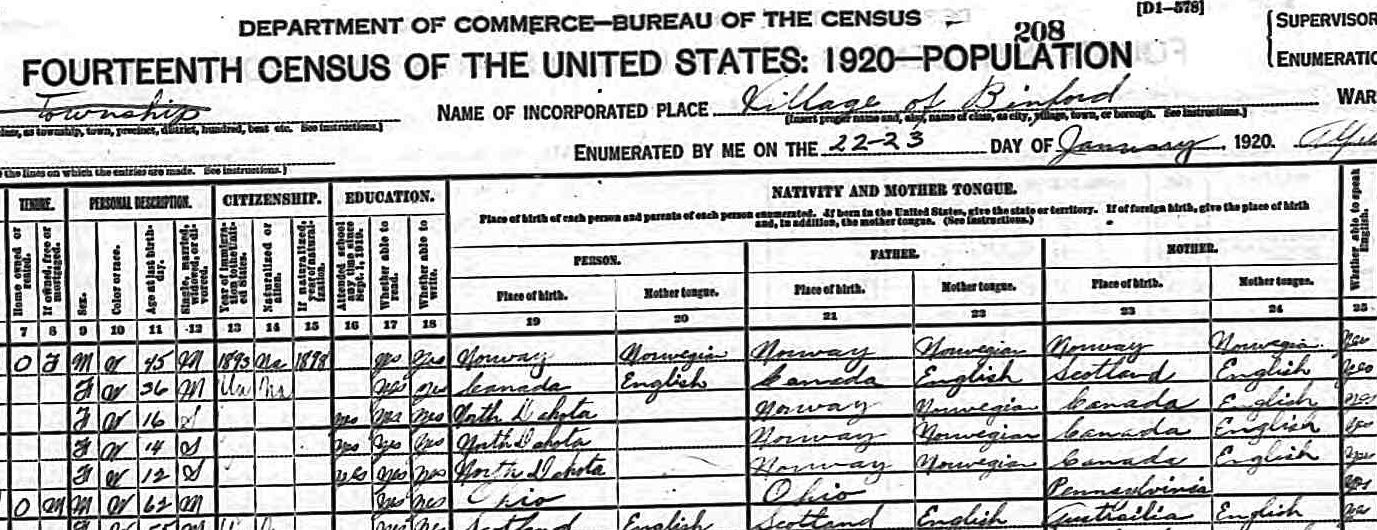 DEPARTMENT OF COMMERCE—BUREAU OF THE CENSUS
208
[D1-578]
FOURTEENTH CENSUS OF THE UNITED STATES: 1920—POPULATION
SUPERVISOR
ENUMERATIO
Township
NAME OF INCORPORATED PLACE Village of Binford
WAR
(Insert proper name and, also, name of class, as city, village, town, or borough. See instructions.)
as township, town, precinct, district, hundred, beat etc. See instructions.)
ENUMERATED BY ME ON THE 22-23 DAY OF January, 1920.
the lines on which the entries are made. See instructions.)
TENURE. PERSONAL DESCRIPTION. CITIZENSHIP. EDUCATION. NATIVITY AND MOTHER TONGUE.
Place of birth of each person and parents of each person enumerated. If born in the United States, give the state or territory. If of foreign birth, give the place of birth
and, in addition, the mother tongue. (See instructions.)
Home owned or rented.
If owned, free or mortgaged.
Sex.
Color or race.
Age at last birthday.
Single, married, widowed, or divorced.
Year of immigration to the United States.
Naturalized or alien.
If naturalized, year of naturalization.
Attended school any time since Sept. 1, 1919.
Whether able to read.
Whether able to write.
PERSON. FATHER. MOTHER.
Place of birth. Mother tongue. Place of birth. Mother tongue. Place of birth. Mother tongue.
Whether able to speak English.
7 8 9 10 11 12 13 14 15 16 17 18 19 20 21 22 23 24 25
O F M W 45 M 1893 Na 1898 yes yes Norway Norwegian Norway Norwegian Norway Norwegian yes
F W 36 M Un Na yes yes Canada English Canada English Scotland English yes
F W 16 S yes yes yes North Dakota Norway Norwegian Canada English yes
F W 14 S yes yes yes North Dakota Norway Norwegian Canada English yes
F W 12 S yes yes yes North Dakota Norway Norwegian Canada English yes
O M M W 62 M yes yes Ohio Ohio Pennsylvinia yes
F yes yes Scotland English Scotland English Austrailia English yes